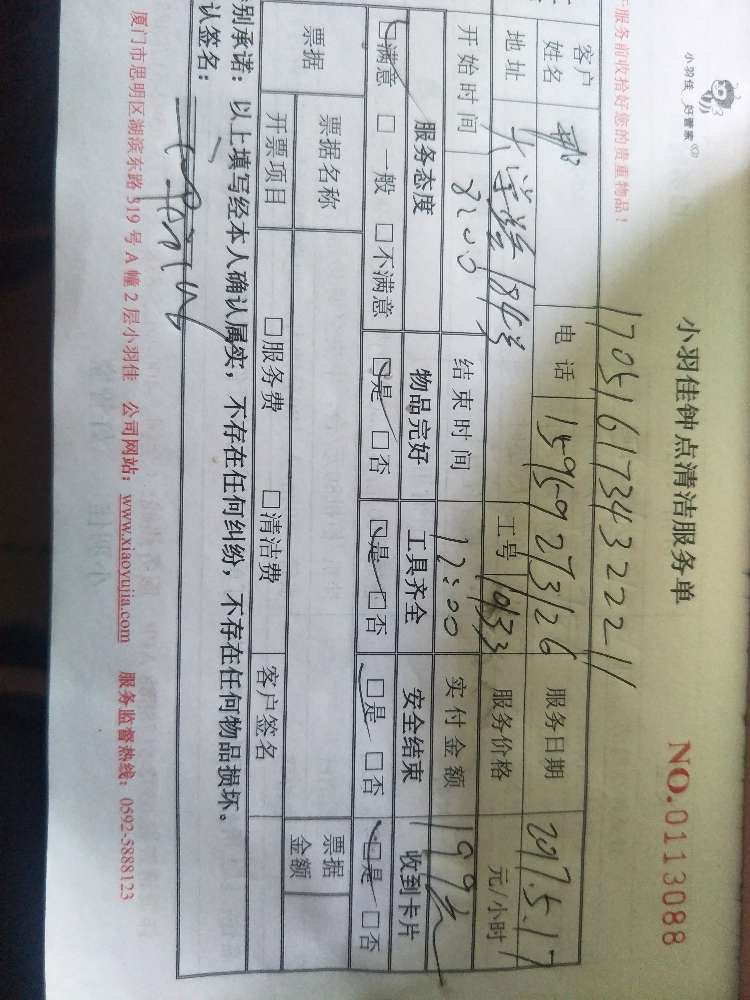 小羽佳 好管家
小羽佳钟点清洁服务单
NO.0113088
服务前收拾好您的贵重物品!
17051617343222
客户姓名 电话 15959273126 服务日期 2017.5.17
地址 大学路184号 工号 1933 服务价格 元/小时
开始时间 8:00 结束时间 12:00 实付金额 199元
服务态度 物品完好 工具齐全 安全结束 收到卡片
☑满意 □一般 □不满意 ☑是 □否 ☑是 □否 ☑是 □否 ☑是 □否
票据 票据名称 票据金额
开票项目 □服务费 □清洁费 客户签名
别承诺:以上填写经本人确认属实,不存在任何纠纷,不存在任何物品损坏。
认签名:
厦门市思明区湖滨东路319号A幢2层小羽佳 公司网站:www.xiaoyujia.com 服务监督热线:0592-5888123